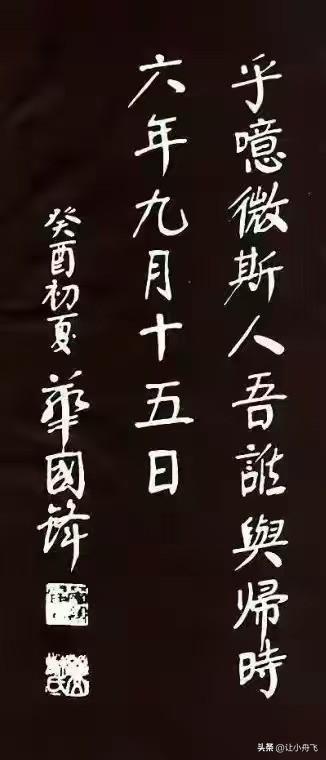 乎噫微斯人吾誰與歸時
六年九月十五日
癸酉初夏 華國鋒
头条 @让小舟飞